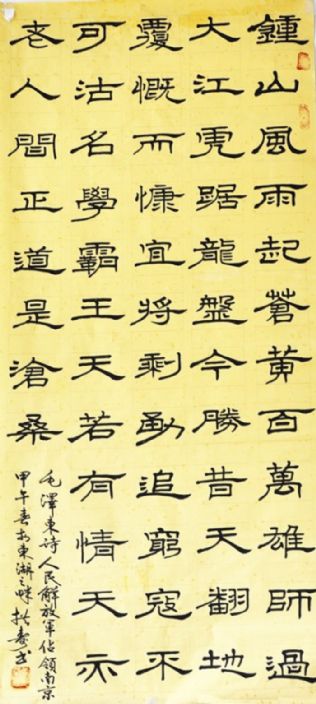 鍾山風雨起蒼黃百萬雄師過
大江虎踞龍盤今勝昔天翻地
覆慨而慷宜將剩勇追窮寇不
可沽名學霸王天若有情天亦
老人間正道是滄桑
毛澤東诗人民解放軍佔領南京
甲午春於東湖之畔